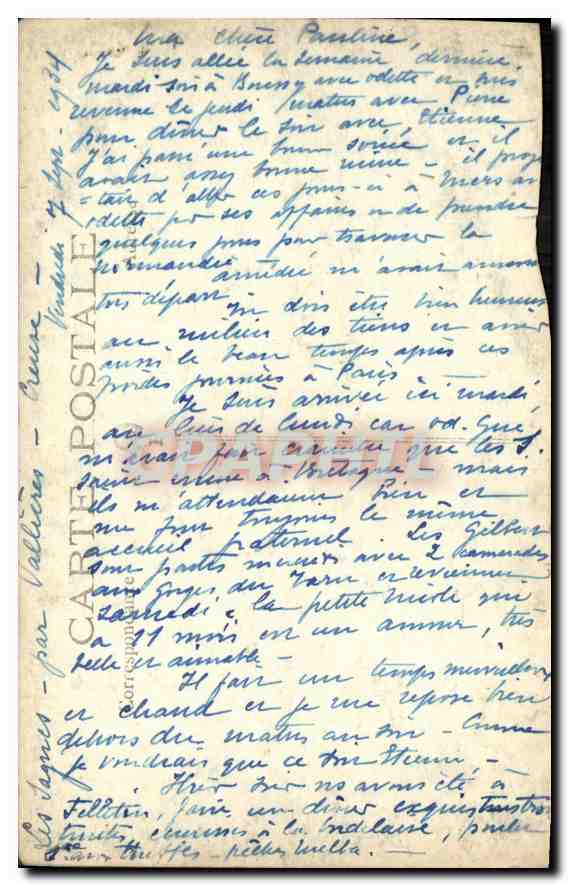 Ma chère Pauline,
Je suis allée la semaine dernière,
mardi soir à Boussy avec Odette et suis
revenue le jeudi matin avec Pierre
pour dîner le soir avec Etienne
J'ai passé une bonne soirée et il
avait assez bonne mine - il proje
=tait d'aller ces jours-ci à Mers av
Odette pr ses affaires ou de prendre
quelques jours pour traverser la
Normandie
m'avait annoncé
ton départ
Tu dois être bien heureuse
au milieu des tiens et avoir
aussi le beau temps après ces
journées à Paris
Je suis arrivée ici mardi,
au lieu de lundi car
m'avait fait craindre que les S.
en Bretagne - mais
ils m'attendaient bien et
me font toujours le même
accueil fraternel. Les Gilbert
sont partis mercredi avec 2 camarades
aux Gorges du Tarn et reviennent
samedi, la petite Nicole qui
a 11 mois est un amour, très
belle et aimable -
Il fait un temps merveilleux
et chaud et je me repose bien
dehors du matin au soir - Comme
je voudrais que ce soit Etienne -
Hier soir ns avons été à
Felletin, faire un dîner exquis
truites, à la, poulet
- pêches Melba. -
Les Sagnes - par Vallières - Creuse -
Vendredi 7 Sept - 1934
CARTE POSTALE
Correspondance
CPARAMA